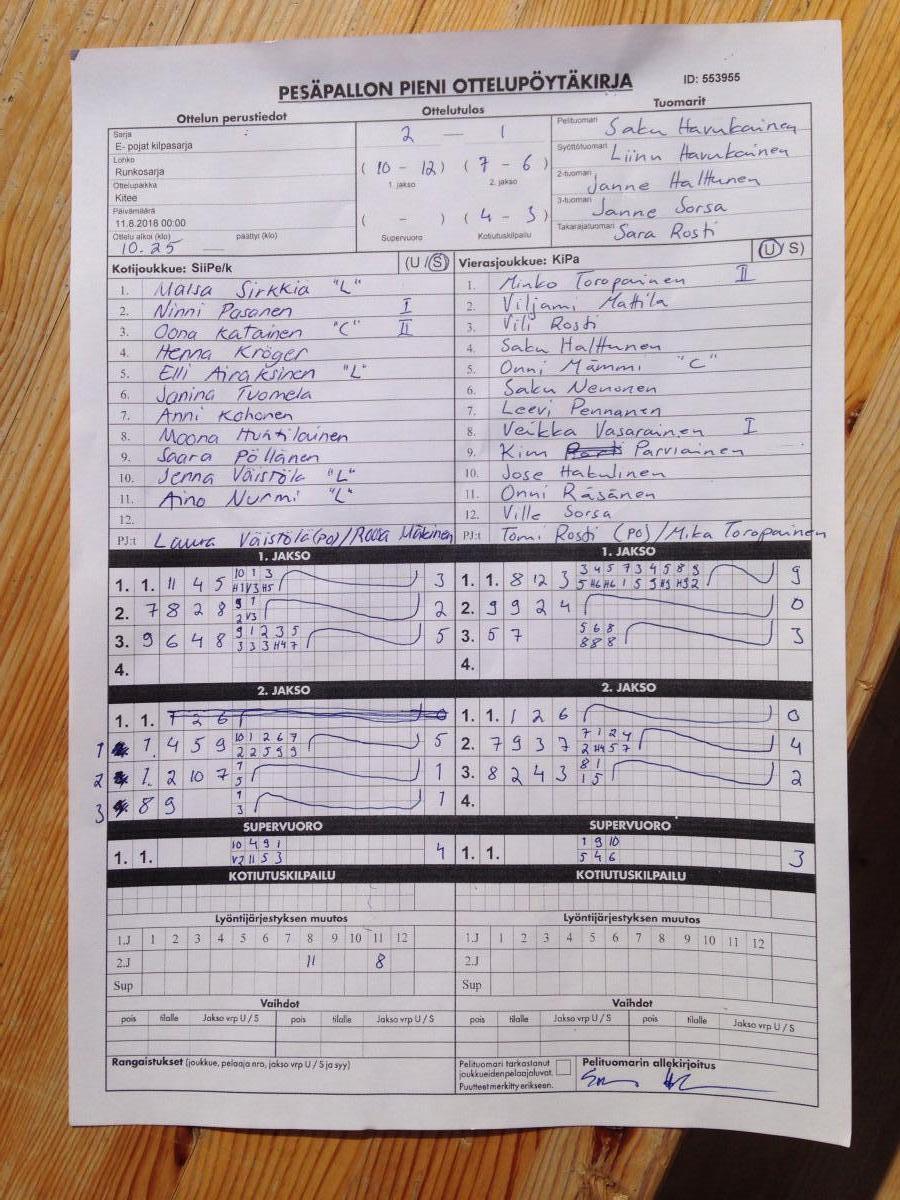 PESÄPALLON PIENI OTTELUPÖYTÄKIRJA
ID: 553955
Ottelun perustiedot
Sarja
E- pojat kilpasarja
Lohko
Runkosarja
Ottelupaikka
Kitee
Päivämäärä
11.8.2018 00:00
Ottelu alkoi (klo) päättyi (klo)
10.25
Ottelutulos
2 — 1
( 10 - 12 ) ( 7 - 6 )
1. jakso 2. jakso
( - ) ( 4 - 3 )
Supervuoro Kotiutuskilpailu
Tuomarit
Pelituomari Saku Havukainen
Syöttötuomari Liinu Havukainen
2-tuomari Janne Halttunen
3-tuomari Janne Sorsa
Takarajatuomari Sara Rosti
Kotijoukkue: SiiPe/k (U / S)
1. Maisa Sirkkiä "L"
2. Ninni Pasanen I
3. Oona Katainen "C" II
4. Henna Kröger
5. Elli Airaksinen "L"
6. Janina Tuomela
7. Anni Kohonen
8. Moona Huhtilainen
9. Saara Pöllänen
10. Jenna Väistölä "L"
11. Aino Nurmi "L"
12.
PJ:t Laura Väistölä (PO) / Roosa Mäkinen
Vierasjoukkue: KiPa (U / S)
1. Minko Toropainen II
2. Viljami Mattila
3. Vili Rosti
4. Saku Halttunen
5. Onni Mämmi "C"
6. Saku Nenonen
7. Leevi Pennanen
8. Veikka Vasarainen I
9. Kim Parviainen
10. Jose Hakulinen
11. Onni Räsänen
12. Ville Sorsa
PJ:t Tomi Rosti (PO) / Mika Toropainen
1. JAKSO
1. 1. 11 4 5 10 1 3 3
H1 V3 H5
2. 7 8 2 8 9 1 2
2 V3
3. 9 6 4 8 9 1 2 3 5 5
3 3 3 H4 7
4.
1. JAKSO
1. 1. 8 12 3 3 4 5 7 3 4 5 8 9 9
5 H6 H6 1 5 9 H9 H9 2
2. 9 9 2 4 0
3. 5 7 5 6 8 3
8 8 8
4.
2. JAKSO
1. 1. 7 2 6 0
1 1. 4 5 9 10 1 2 6 7 5
2 2 5 9 9
2 1. 2 10 7 7 1
5
3 8 9 1 1
3
2. JAKSO
1. 1. 1 2 6 0
2. 7 9 3 7 7 1 2 4 4
2 H4 5 7
3. 8 2 4 3 8 1 2
1 5
4.
SUPERVUORO
1. 1. 10 4 9 1 4
V2 11 5 3
SUPERVUORO
1. 1. 1 9 10 3
5 4 6
KOTIUTUSKILPAILU
KOTIUTUSKILPAILU
Lyöntijärjestyksen muutos
1.J 1 2 3 4 5 6 7 8 9 10 11 12
2.J 11 8
Sup
Lyöntijärjestyksen muutos
1.J 1 2 3 4 5 6 7 8 9 10 11 12
2.J
Sup
Vaihdot
pois tilalle Jakso vrp U / S pois tilalle Jakso vrp U / S
Vaihdot
pois tilalle Jakso vrp U / S pois tilalle Jakso vrp U / S
Rangaistukset (joukkue, pelaaja nro, jakso vrp U / S ja syy)
Pelituomari tarkastanut
joukkueidenpelaajaluvat.
Puutteet merkitty erikseen.
Pelituomarin allekirjoitus